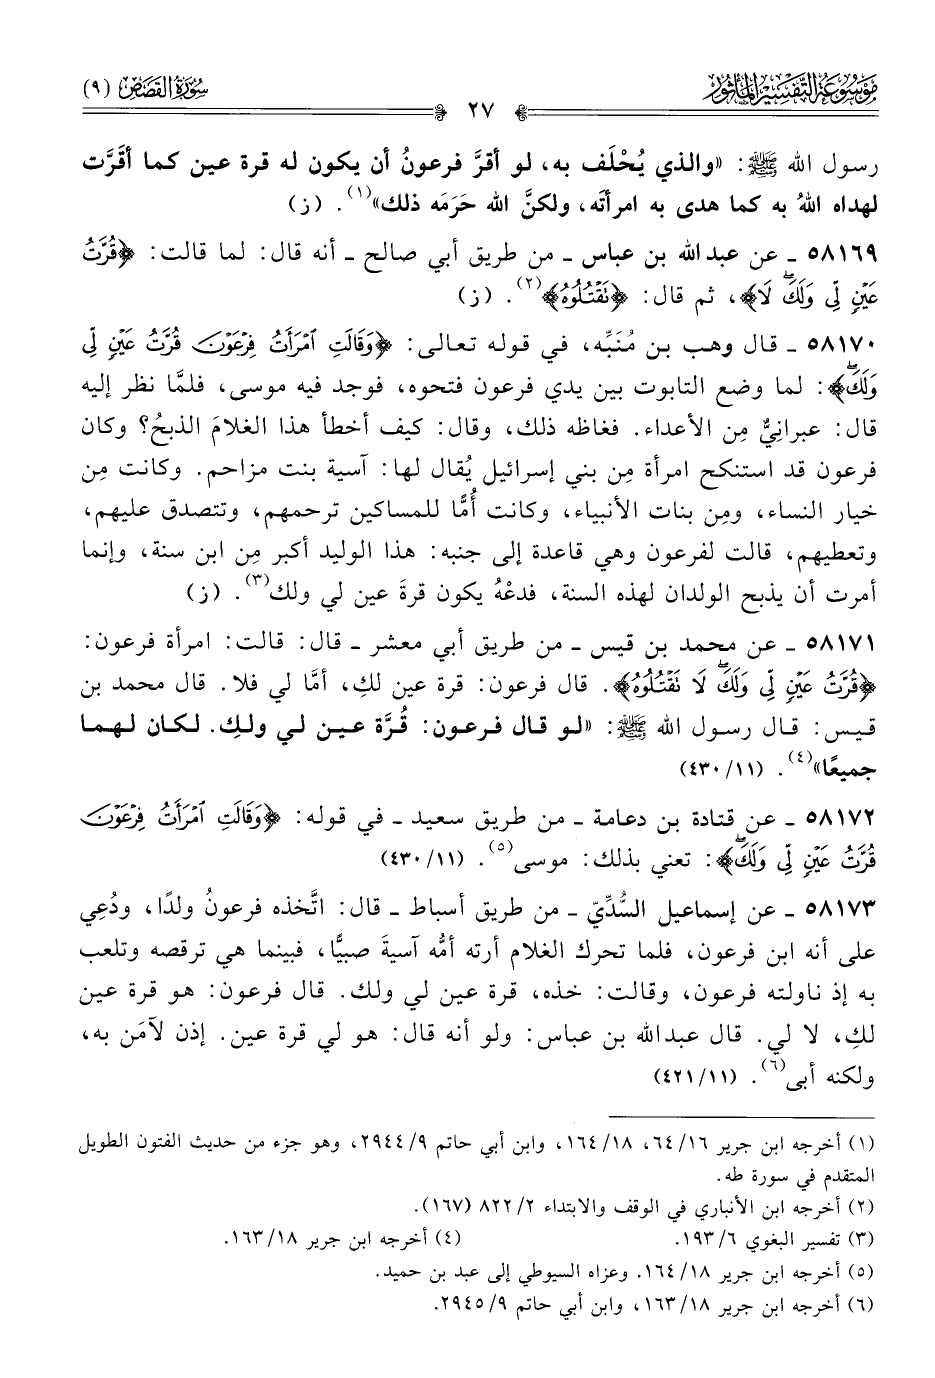 مَوْسُوعَةُ التَّفْسِيرِ المَأْثُورِ
سُورَةُ القَصَصِ (٩)
٢٧
رسول الله ﷺ: «والذي يُحْلَف به، لو أقرَّ فرعونُ أن يكون له قرة عين كما أقَرَّت
لهداه اللهُ به كما هدى به امرأتَه، ولكنَّ الله حَرَمَه ذلك»(١). (ز)
٥٨١٦٩ ـ عن عبد الله بن عباس ـ من طريق أبي صالح ـ أنه قال: لما قالت: ﴿قُرَّتُ
عَيۡنٖ لِّي وَلَكَۖ لَا﴾، ثم قال: ﴿تَقۡتُلُوهُ﴾(٢). (ز)
٥٨١٧٠ ـ قال وهب بن مُنَبِّه، في قوله تعالى: ﴿وَقَالَتِ ٱمۡرَأَتُ فِرۡعَوۡنَ قُرَّتُ عَيۡنٖ لِّي
وَلَكَۖ﴾: لما وضع التابوت بين يدي فرعون فتحوه، فوجد فيه موسى، فلمَّا نظر إليه
قال: عبرانيٌّ مِن الأعداء. فغاظه ذلك، وقال: كيف أخطأ هذا الغلامَ الذبحُ؟ وكان
فرعون قد استنكح امرأة مِن بني إسرائيل يُقال لها: آسية بنت مزاحم. وكانت مِن
خيار النساء، ومِن بنات الأنبياء، وكانت أُمًّا للمساكين ترحمهم، وتتصدق عليهم،
وتعطيهم، قالت لفرعون وهي قاعدة إلى جنبه: هذا الوليد أكبر مِن ابن سنة، وإنما
أمرت أن يذبح الولدان لهذه السنة، فدعْهُ يكون قرةَ عين لي ولك(٣). (ز)
٥٨١٧١ ـ عن محمد بن قيس ـ من طريق أبي معشر ـ قال: قالت: امرأة فرعون:
﴿قُرَّتُ عَيۡنٖ لِّي وَلَكَۖ لَا تَقۡتُلُوهُ﴾. قال فرعون: قرة عين لكِ، أمَّا لي فلا. قال محمد بن
قيس: قال رسول الله ﷺ: «لو قال فرعون: قُرَّة عين لي ولكِ. لكان لهما
جميعًا»(٤). (١١/ ٤٣٠)
٥٨١٧٢ ـ عن قتادة بن دعامة ـ من طريق سعيد ـ في قوله: ﴿وَقَالَتِ ٱمۡرَأَتُ فِرۡعَوۡنَ
قُرَّتُ عَيۡنٖ لِّي وَلَكَۖ﴾: تعني بذلك: موسى(٥). (١١/ ٤٣٠)
٥٨١٧٣ ـ عن إسماعيل السُّدِّيّ ـ من طريق أسباط ـ قال: اتَّخذه فرعونُ ولدًا، ودُعِي
على أنه ابن فرعون، فلما تحرك الغلام أرته أمُّه آسيةَ صبيًّا، فبينما هي ترقصه وتلعب
به إذ ناولته فرعون، وقالت: خذه، قرة عين لي ولك. قال فرعون: هو قرة عين
لكِ، لا لي. قال عبد الله بن عباس: ولو أنه قال: هو لي قرة عين. إذن لآمَن به،
ولكنه أبى(٦). (١١/ ٤٢١)
(١) أخرجه ابن جرير ١٦/ ٦٤، ١٨/ ١٦٤، وابن أبي حاتم ٩/ ٢٩٤٤، وهو جزء من حديث الفتون الطويل
المتقدم في سورة طه.
(٢) أخرجه ابن الأنباري في الوقف والابتداء ٢/ ٨٢٢ (١٦٧).
(٣) تفسير البغوي ٦/ ١٩٣. (٤) أخرجه ابن جرير ١٨/ ١٦٣.
(٥) أخرجه ابن جرير ١٨/ ١٦٤. وعزاه السيوطي إلى عبد بن حميد.
(٦) أخرجه ابن جرير ١٨/ ١٦٣، وابن أبي حاتم ٩/ ٢٩٤٥.